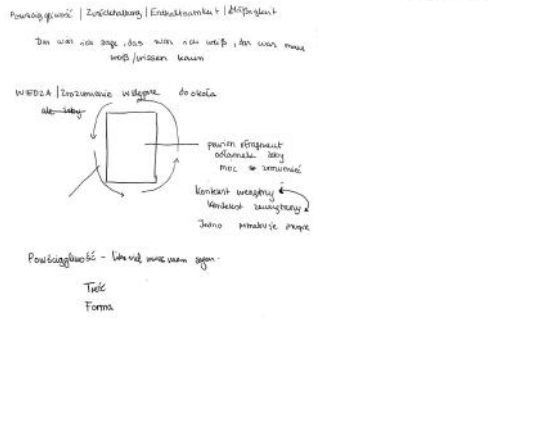 Powściągliwość | Zurückhaltung | Enthaltsamkeit | Mäßigkeit
Das was ich sage, das was ich weiß, das was man
weiß/wissen kann
WIEDZA | Zrozumienie wstępne dookoła
ale żeby
pewien fragment
odłamek żeby
móc zrozumieć
Kontekst wewnętrzny
Kontekst zewnętrzny
Jedno potrzebuje drugie
Powściągliwość - wieviel muss man sagen.
Treść
Forma